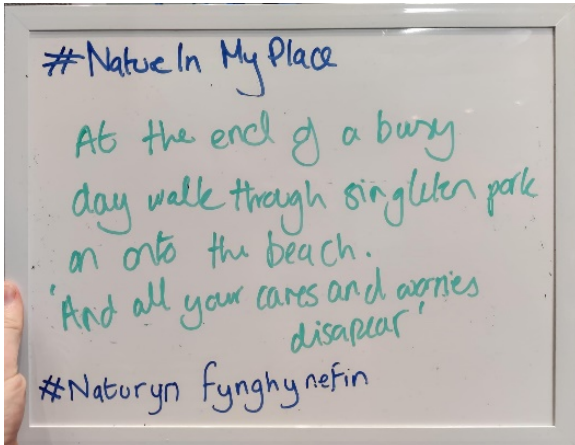 #NatureIn My Place
At the end of a busy
day walk through singleton park
on onto the beach.
'And all your cares and worries
disapear'
#Naturyn fynghynefin